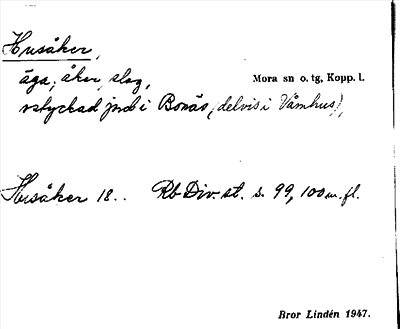 Husåker,
äga, åker, slog, Mora sn o. tg, Kopp. l.
ostyckad jord i Bonäs (delvis i Våmhus),
Husåker 18.. Rb Div. st. s. 99, 100 m. fl.
Bror Lindén 1947.